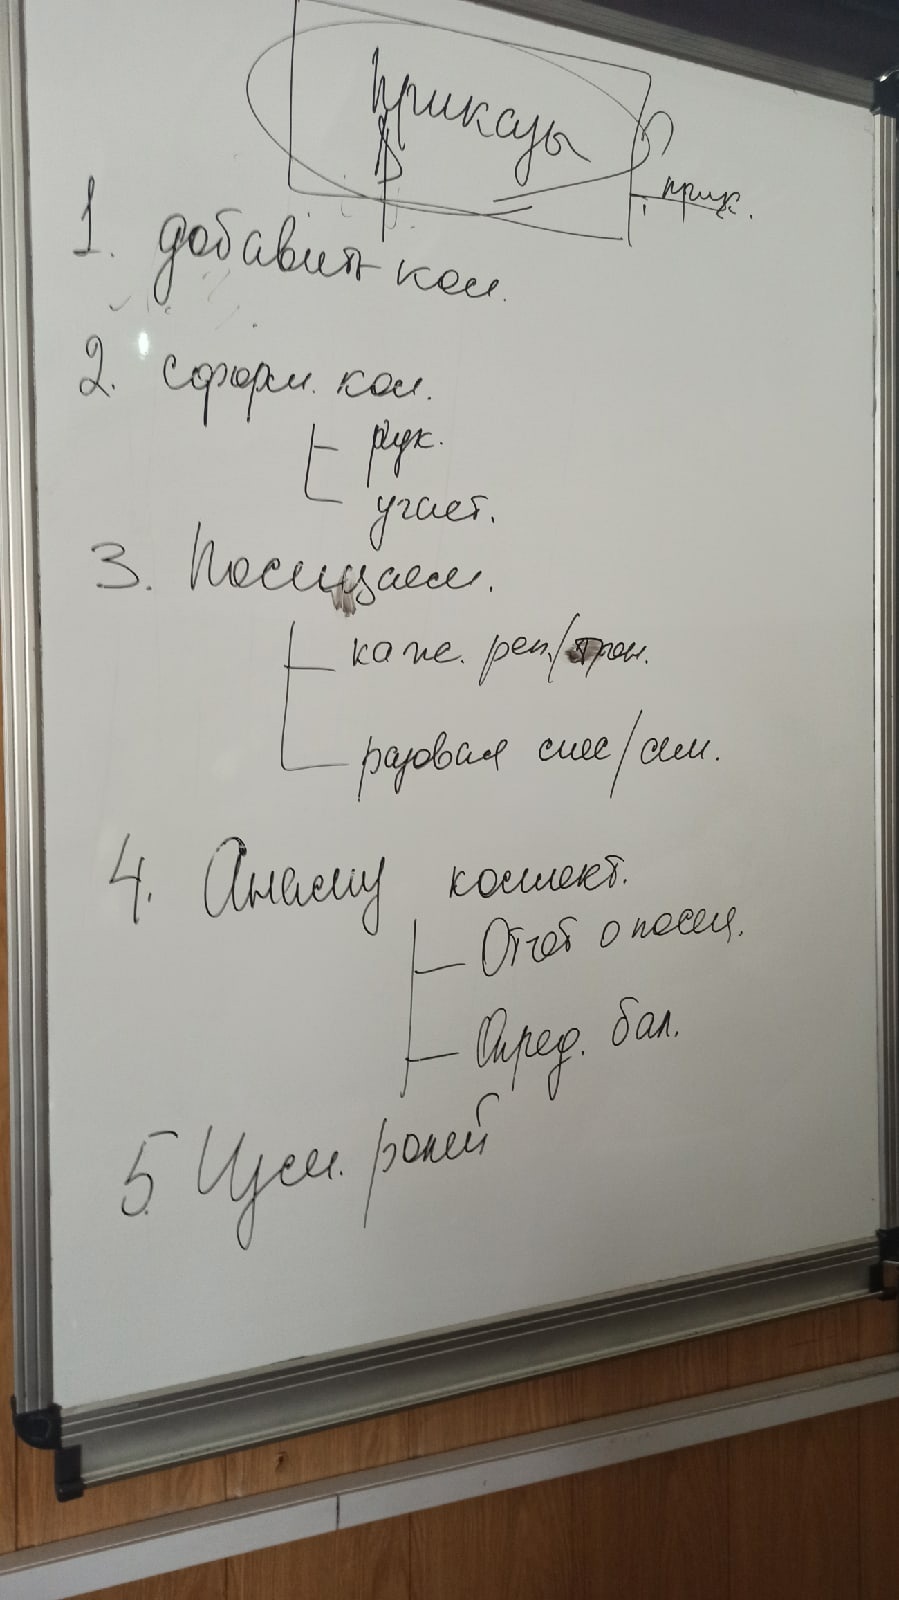 Приказы
прик.
1. добавить кол.
2. сформ. кол.
рук.
участ.
3. Посещаем.
каж. реп./
разовая смс/сем.
4. Анализ коллект.
Отчёт о посещ.
Опред. бал.
5. Изм. ролей